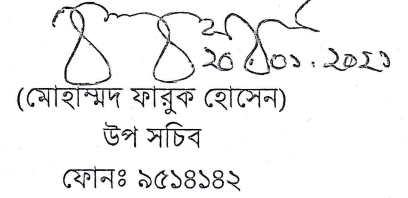 ২০.০১.২০২১
(মোহাম্মদ ফারুক হোসেন)
উপ সচিব
ফোনঃ ৯৫১৪১৪২